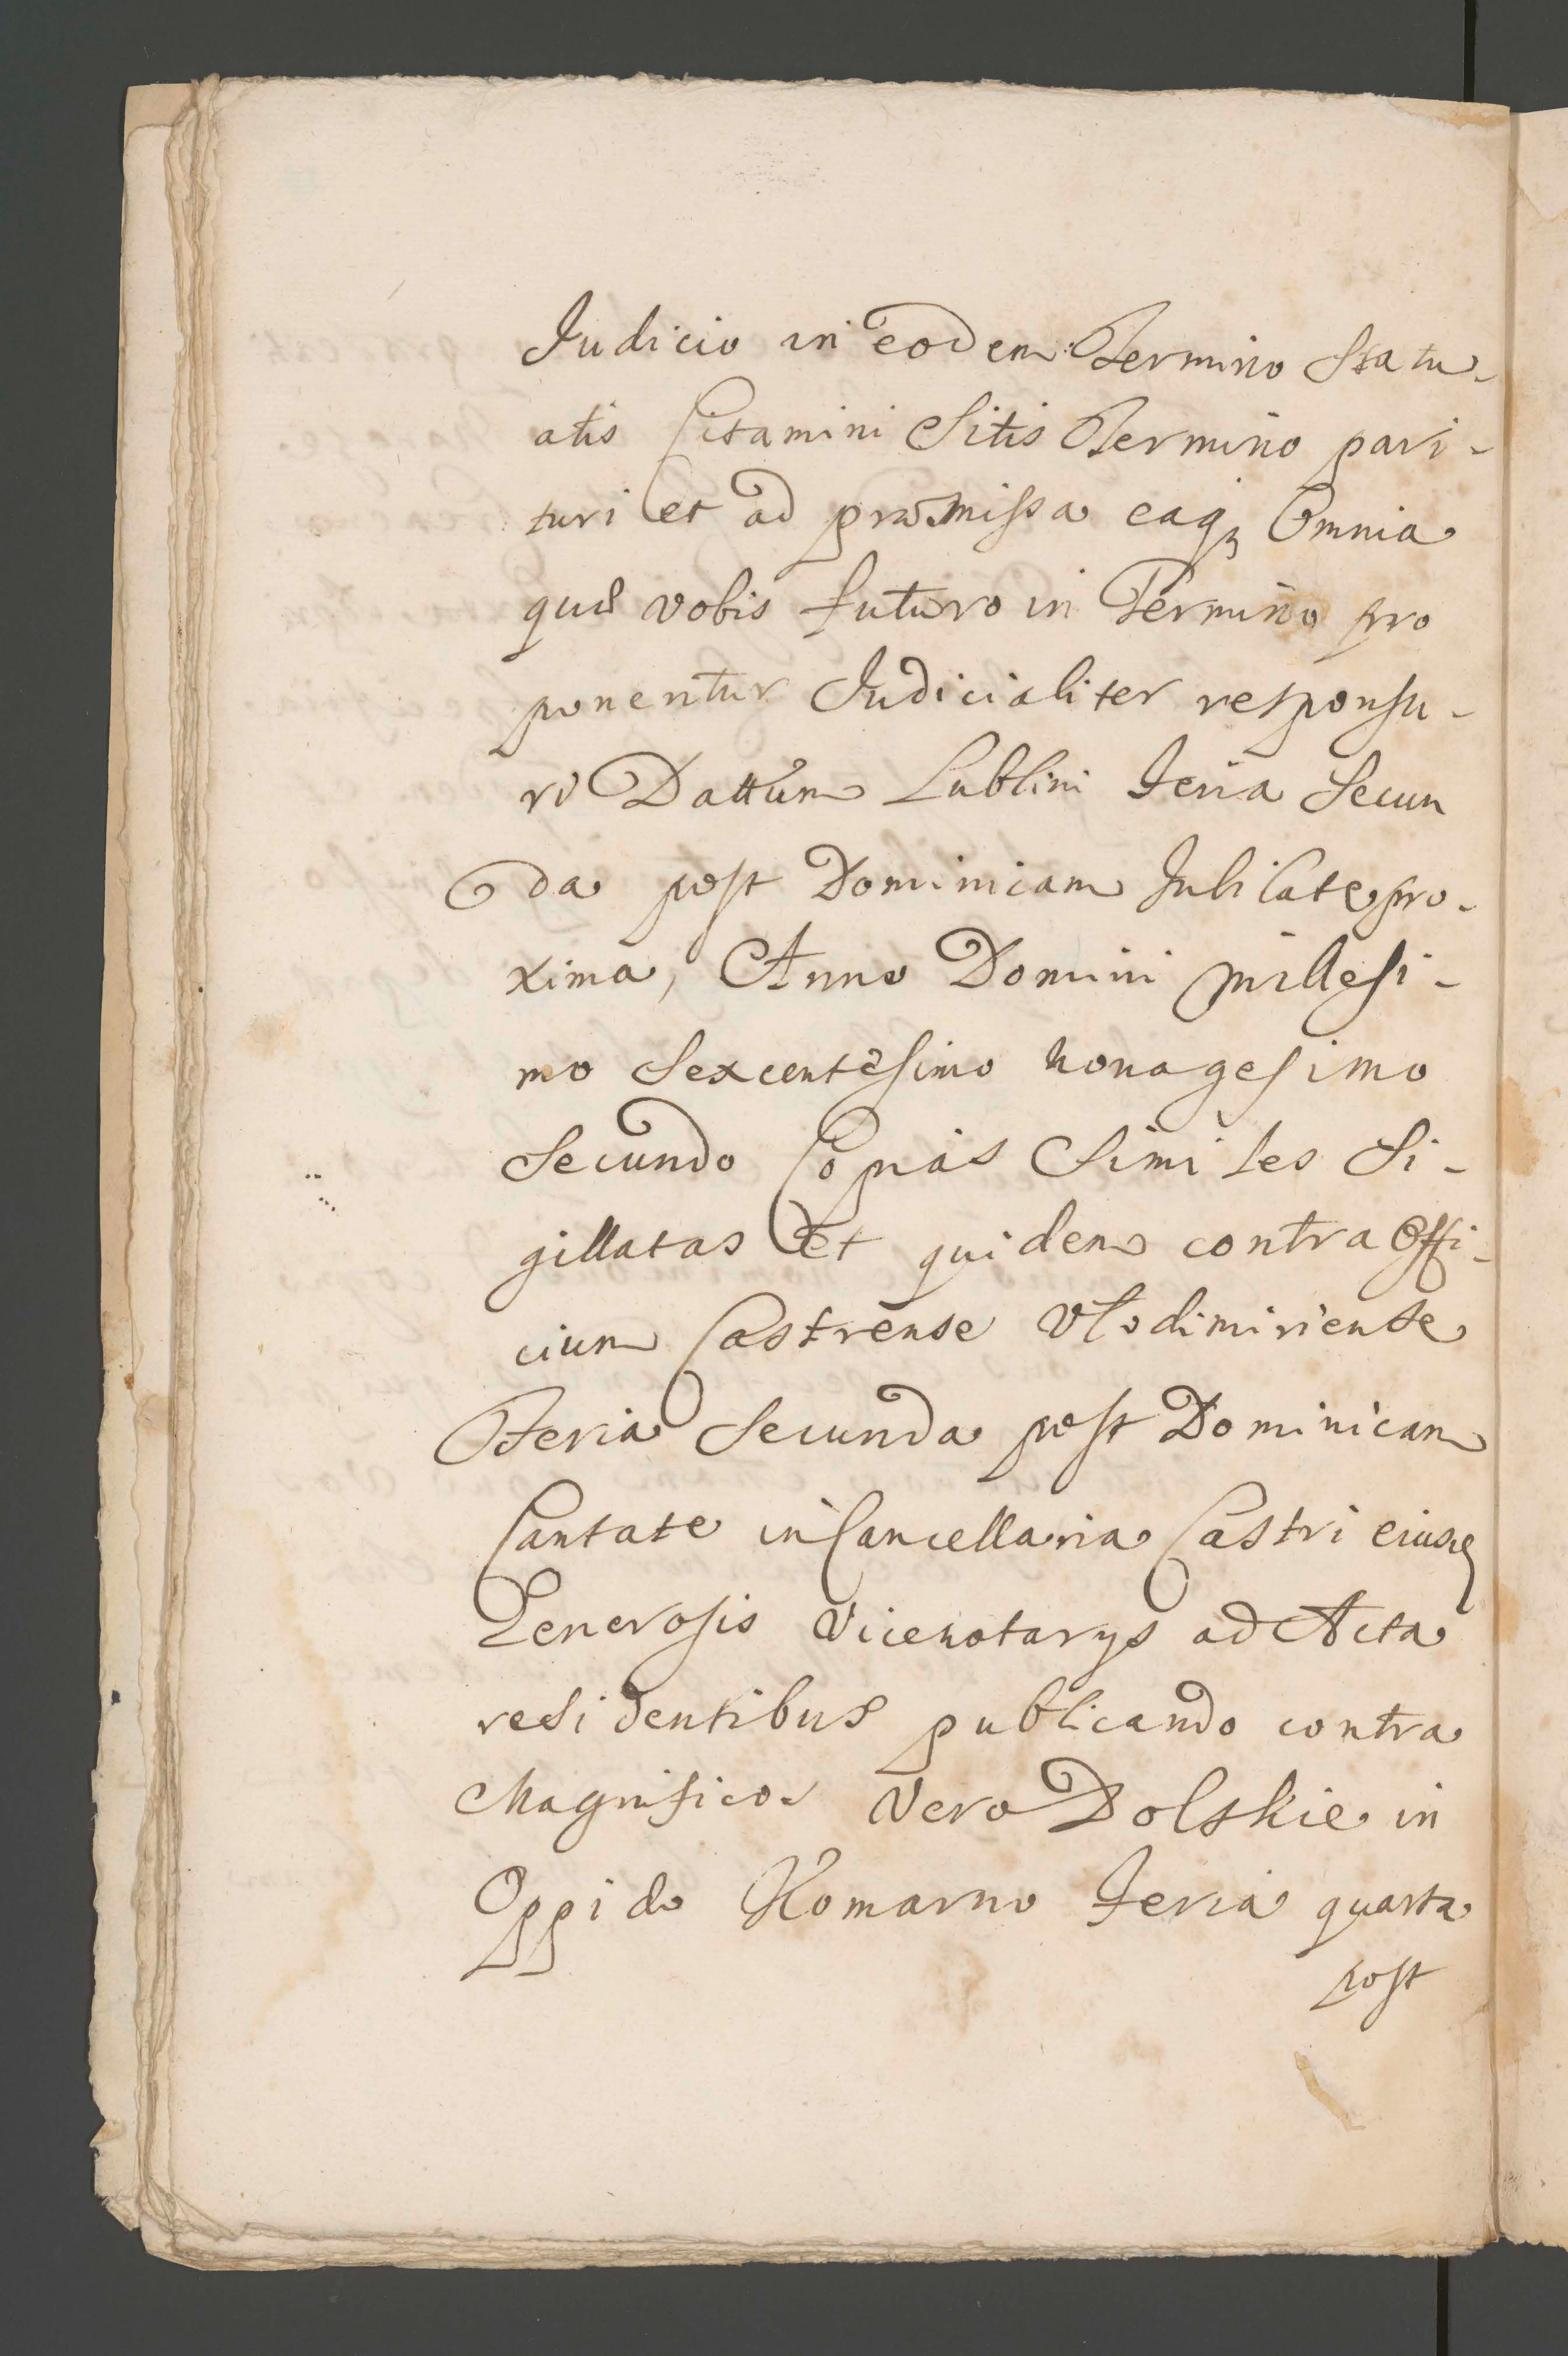 Judicio in eodem Termino Statu-
atis Citamini Sitis Termino pari-
turi et ad præmissa eaq₃ Omnia
quæ vobis futuro in Termino pro
ponentur Judicialiter responsu-
ri Dattum Lublini Feria Secun
da post Dominicam Jubilate pro-
xima, Anno Domini millesi-
mo Sexcentesimo nonagesimo
Secundo Copias Similes Si-
gillatas Et quidem contra Offi-
cium Castrense Vlodimiriense
Feria Secunda post Dominicam
Cantate in Cancellaria Castri eiusd
Generosis Vicenotarys ad Acta
residentibus publicando contra
Magnificos Vero Dolskie in
Oppido Komarno Feria quarta
post